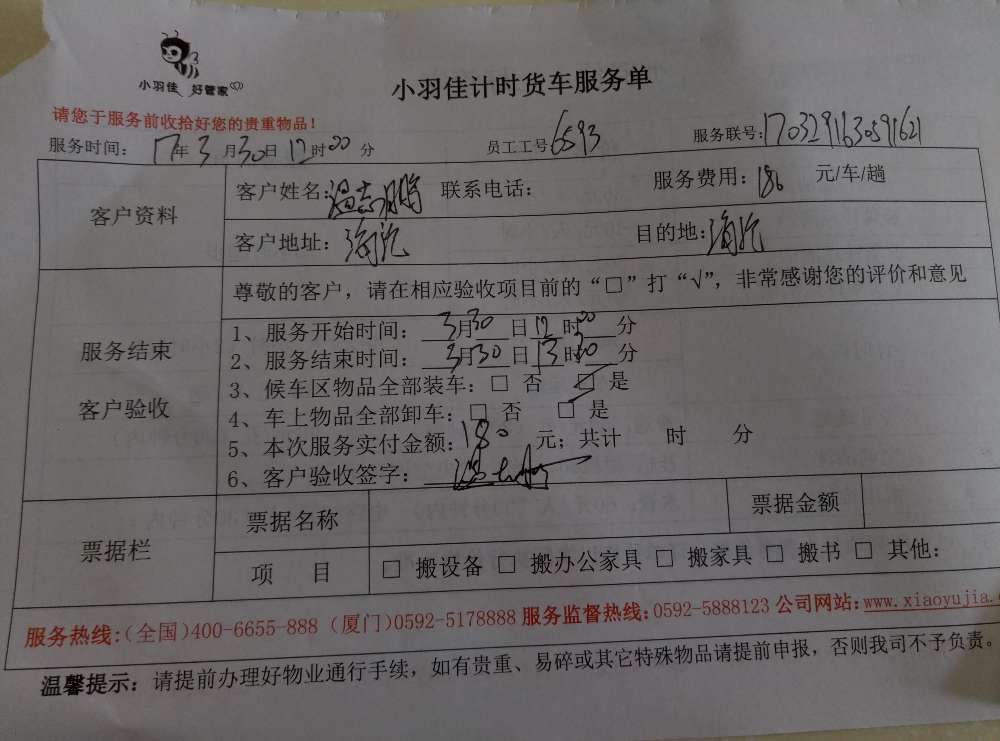 小羽佳 好管家
小羽佳计时货车服务单
请您于服务前收拾好您的贵重物品！
服务时间： 17年3月30日12时00分 员工工号6593 服务联号：1703291630591621
客户资料 客户姓名：温志鹏 联系电话： 服务费用：186 元/车/趟
客户地址：海沧 目的地：海沧
尊敬的客户，请在相应验收项目前的“□”打“√”，非常感谢您的评价和意见
服务结束
客户验收
1、服务开始时间： 3月30日12时00分
2、服务结束时间： 3月30日13时30分
3、候车区物品全部装车：□ 否 □ 是
4、车上物品全部卸车：□ 否 □ 是
5、本次服务实付金额：180 元；共计 时 分
6、客户验收签字：
票据栏 票据名称 票据金额
项 目 □ 搬设备 □ 搬办公家具 □ 搬家具 □ 搬书 □ 其他：
服务热线：（全国）400-6655-888（厦门）0592-5178888 服务监督热线：0592-5888123 公司网站：www.xiaoyujia.
温馨提示：请提前办理好物业通行手续，如有贵重、易碎或其它特殊物品请提前申报，否则我司不予负责。